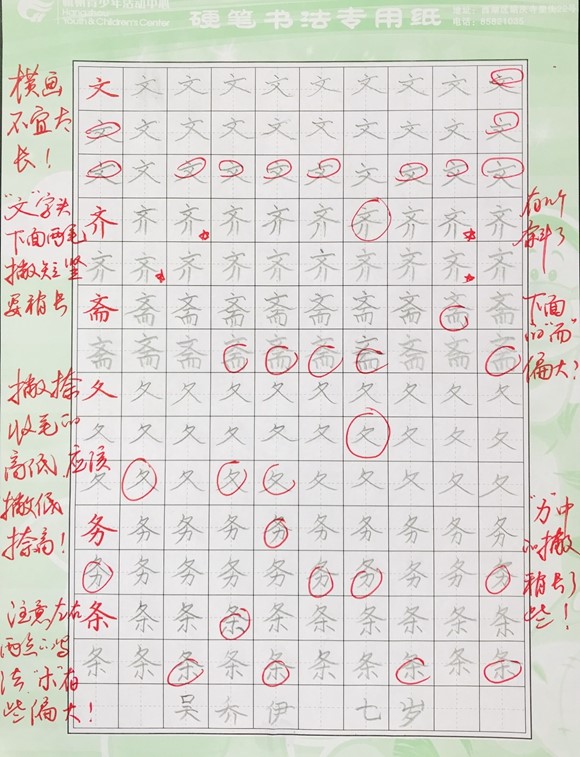 Youth & Children's Center
硬笔书法专用纸
横画
不宜太
长！
"文"字头
下面两笔
撇短竖
要稍长
撇捺
收笔的
高低应该
撇低
捺高！
注意左右
两点的写
法"木"有
些偏大！
文文文文文文文文文文
文文文文文文文文文文
文文文文文文文文文文
齐齐齐齐齐齐齐齐齐齐
齐齐齐齐齐齐齐齐齐齐
斋斋斋斋斋斋斋斋斋斋
斋斋斋斋斋斋斋斋斋斋
夂夂夂夂夂夂夂夂夂夂
夂夂夂夂夂夂夂夂夂夂
夂夂夂夂夂夂夂夂夂夂
务务务务务务务务务务
务务务务务务务务务务
条条条条条条条条条条
条条条条条条条条条条
吴乔伊 七岁
有几个
斜了
下面
的"而"
偏大！
"力"中
的撇
稍长了
些！